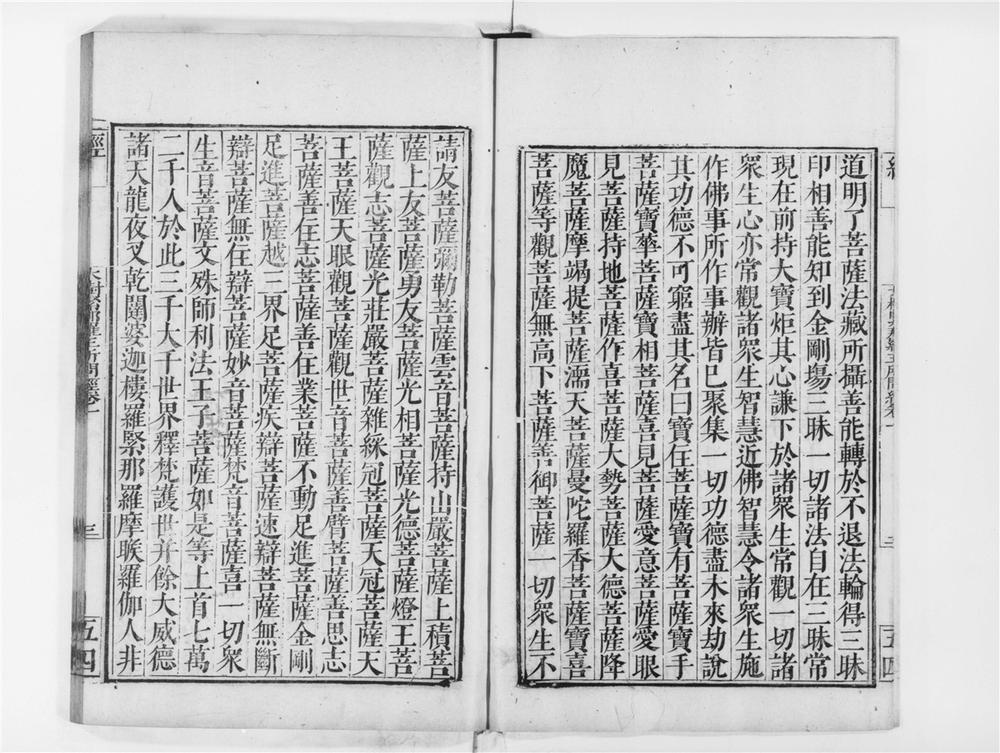 道明了菩薩法藏所攝善能轉於不退法輪得三昧
印相善能知到金剛場三昧一切諸法自在三昧常
現在前持大寶炬其心謙下於諸眾生常觀一切諸
眾生心亦常觀諸眾生智慧近佛智慧令諸眾生施
作佛事所作事辦皆已聚集一切功德盡未來劫說
其功德不可窮盡其名曰寶住菩薩寶有菩薩寶手
菩薩寶華菩薩寶相菩薩喜見菩薩愛意菩薩愛眼
見菩薩持地菩薩作喜菩薩大勢菩薩大德菩薩降
魔菩薩摩竭提菩薩濡天菩薩曼陀羅香菩薩寶喜
菩薩等觀菩薩無高下菩薩善御菩薩一切眾生不
請友菩薩彌勒菩薩雲音菩薩持山嚴菩薩上積菩
薩上友菩薩勇友菩薩光相菩薩光德菩薩燈王菩
薩觀志菩薩光莊嚴菩薩雜綵冠菩薩天冠菩薩天
王菩薩天眼觀菩薩觀世音菩薩善臂菩薩善思志
菩薩善住志菩薩善住業菩薩不動足進菩薩金剛
足進菩薩越三界足菩薩疾辯菩薩速辯菩薩無斷
辯菩薩無住辯菩薩妙音菩薩梵音菩薩喜一切眾
生音菩薩文殊師利法王子菩薩如是等上首七萬
二千人於此三千大千世界釋梵護世并餘大威德
諸天龍夜叉乾闥婆迦樓羅緊那羅摩睺羅伽人非
三
五四